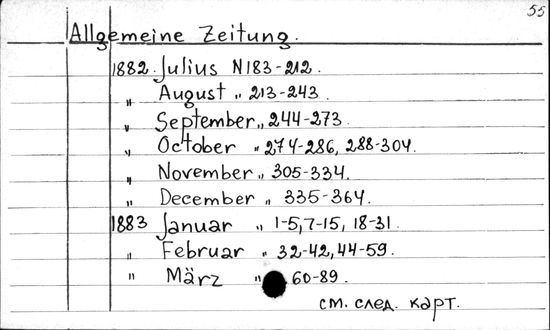 55
Allgemeine Zeitung.
1882. Julius N183-212.
" August " 213-243
" September " 244-273
" October " 274-286, 288-304.
" November " 305-334.
" December " 335-364.
1883 Januar " 1-5, 7-15, 18-31
" Februar " 32-42, 44-59.
" März " 60-89.
см. след. карт.